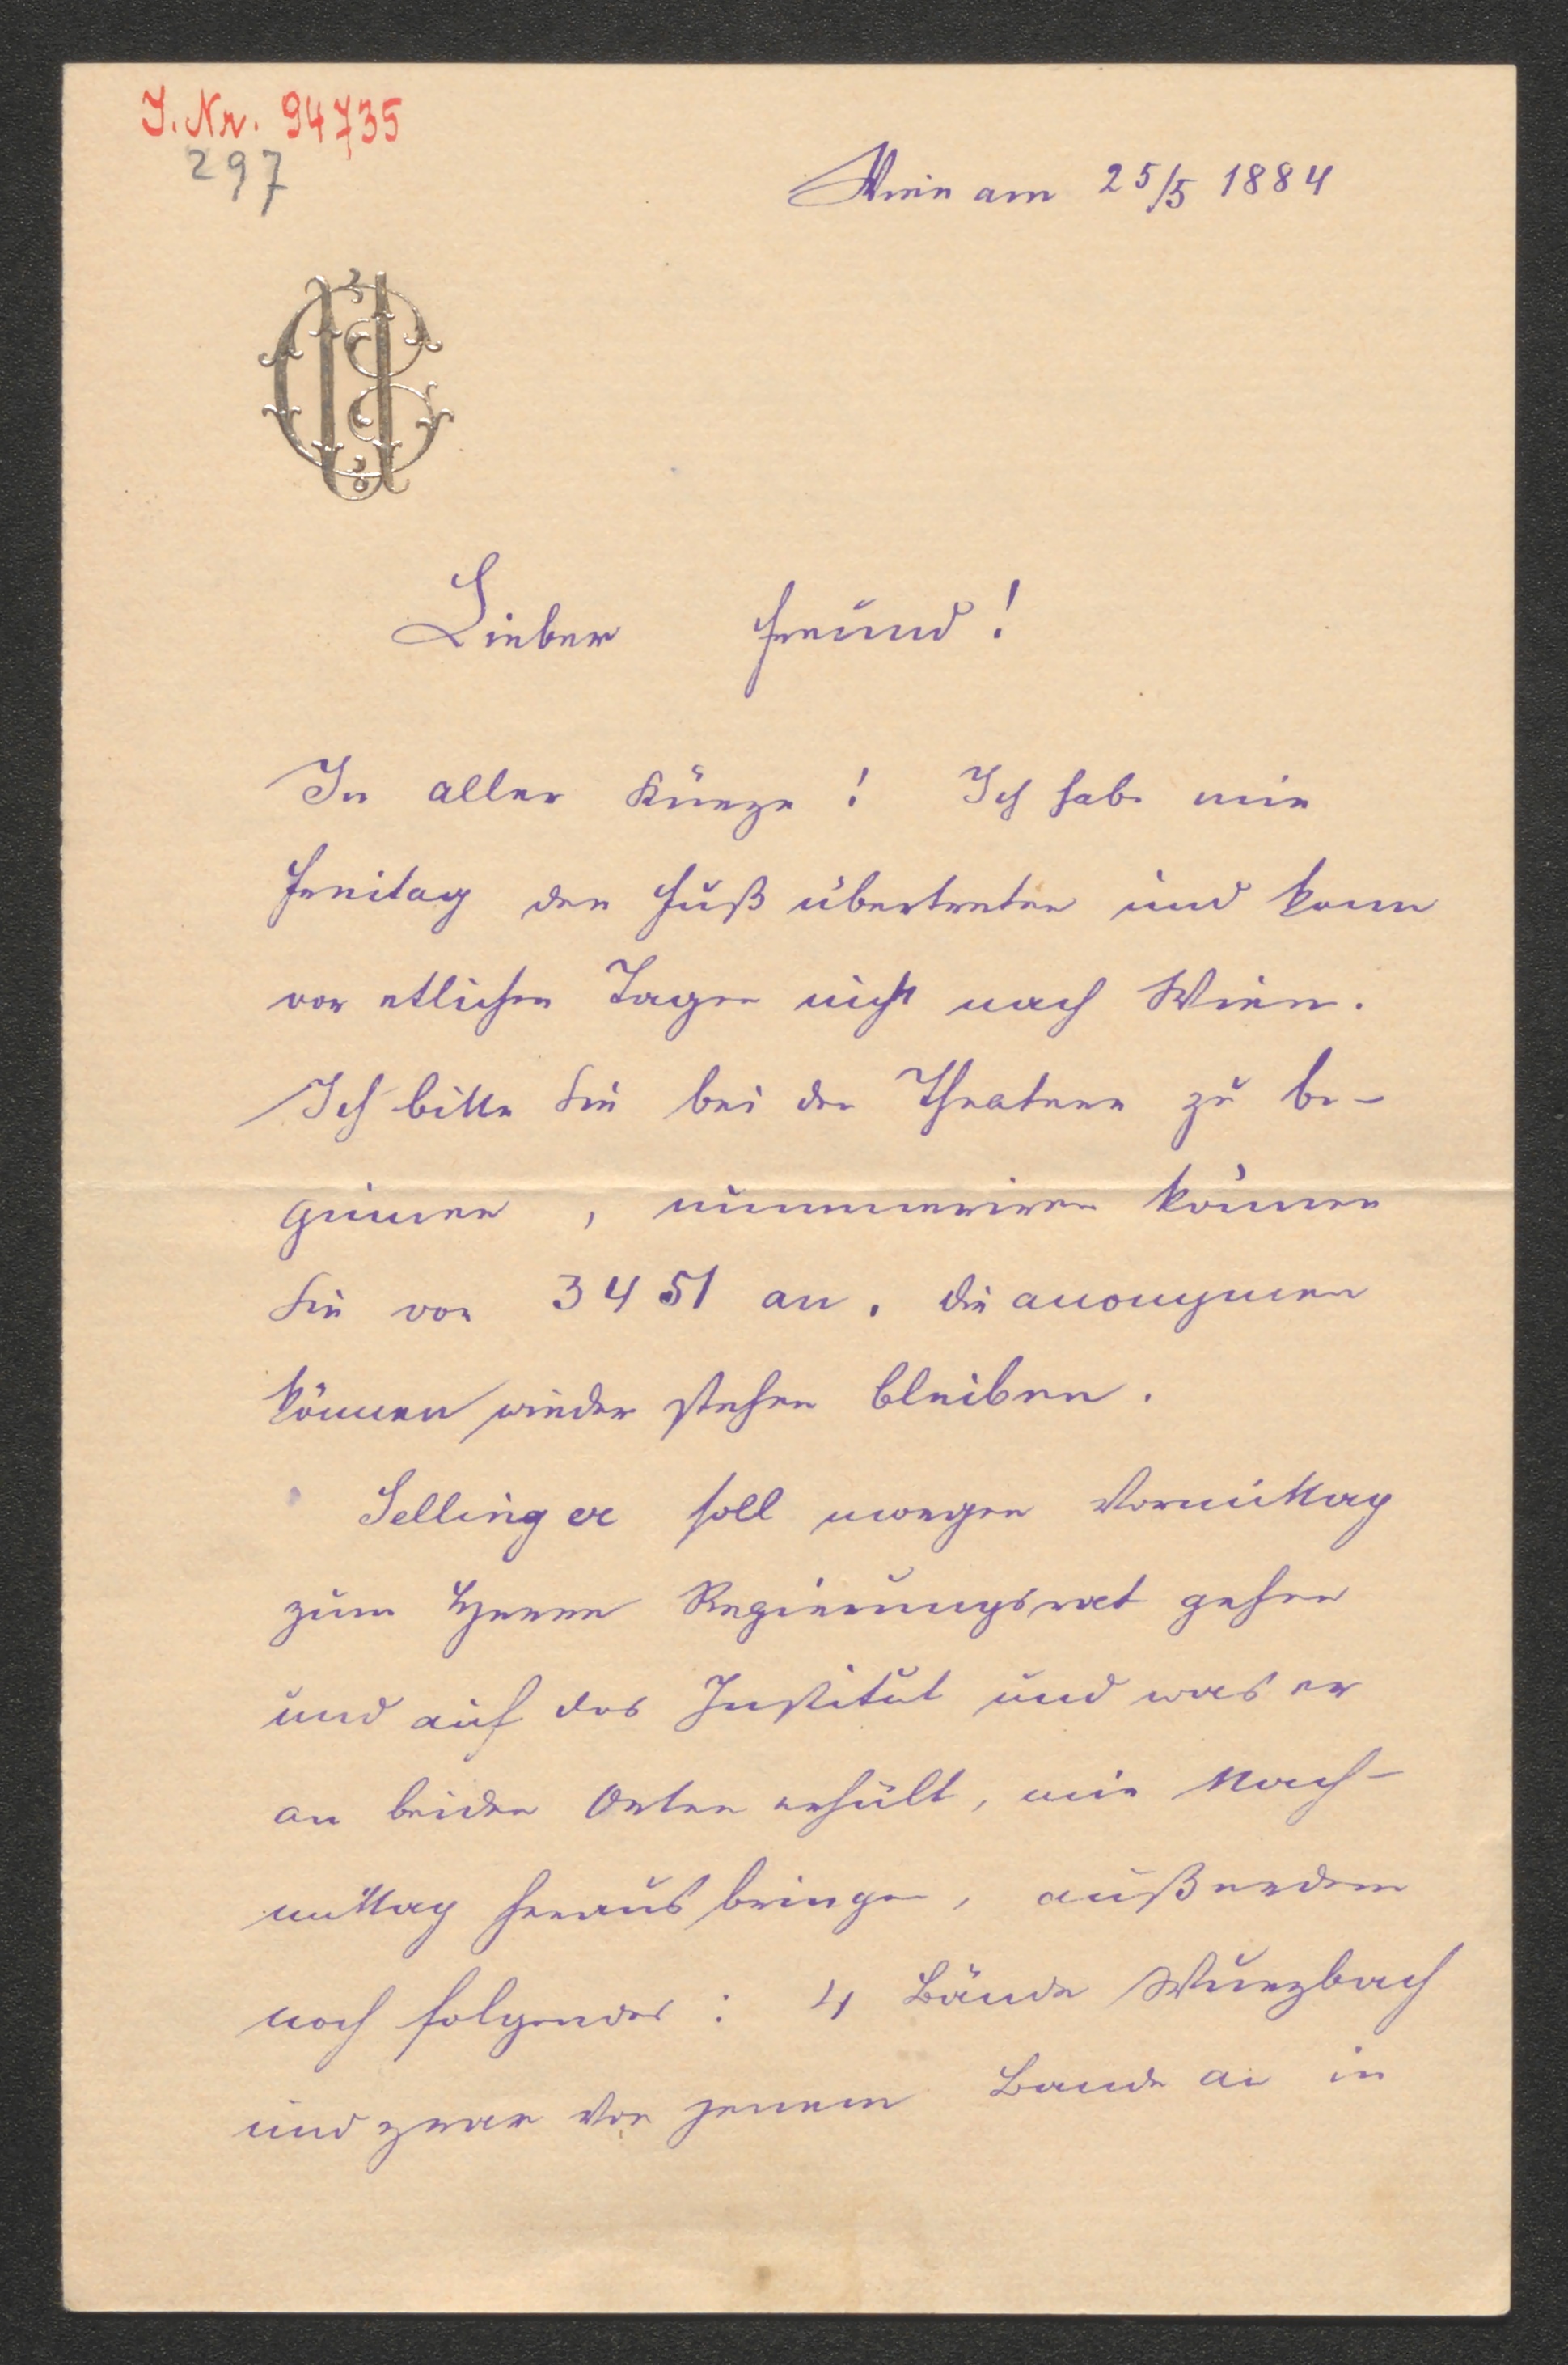 I. Nr. 94735
297
Wien am 25/5 1884
Lieber Freund!
In aller Kürze! Ich habe mir
Freitag den Fuß übertreten und kann
vor etlichen Tagen nicht nach Wien.
Ich bitte Sie bei den Theatern zu be-
ginnen, nummeriren können
Sie von 3451 an. Die anonymen
können wieder stehen bleiben.
Sellinger soll morgen Vormittag
zum Herrn Regierungsrat gehen
und auf das Institut und was er
an beiden Orten erhält, mir Nach-
mittag herausbringen, außerdem
noch folgendes: 4 Bände Wurzbach
und zwar von jenem Bande an in